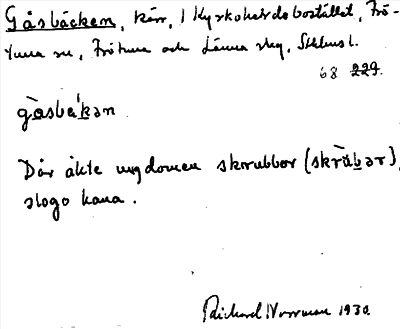 Gåsbäcken, kärr, 1 Kyrkoherdebostället, Frö-
tuna sn, Frötuna och Länna skg, Sthlms l.
68 229.
gåsbäkan
Där åkte ungdomen skrubbor (skrubər),
slogo kana.
Rickard Norrman 1930.